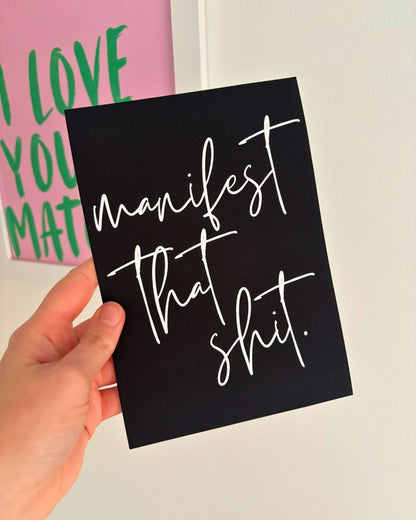 manifest
that
shit.
I LOVE
YOU
MAT